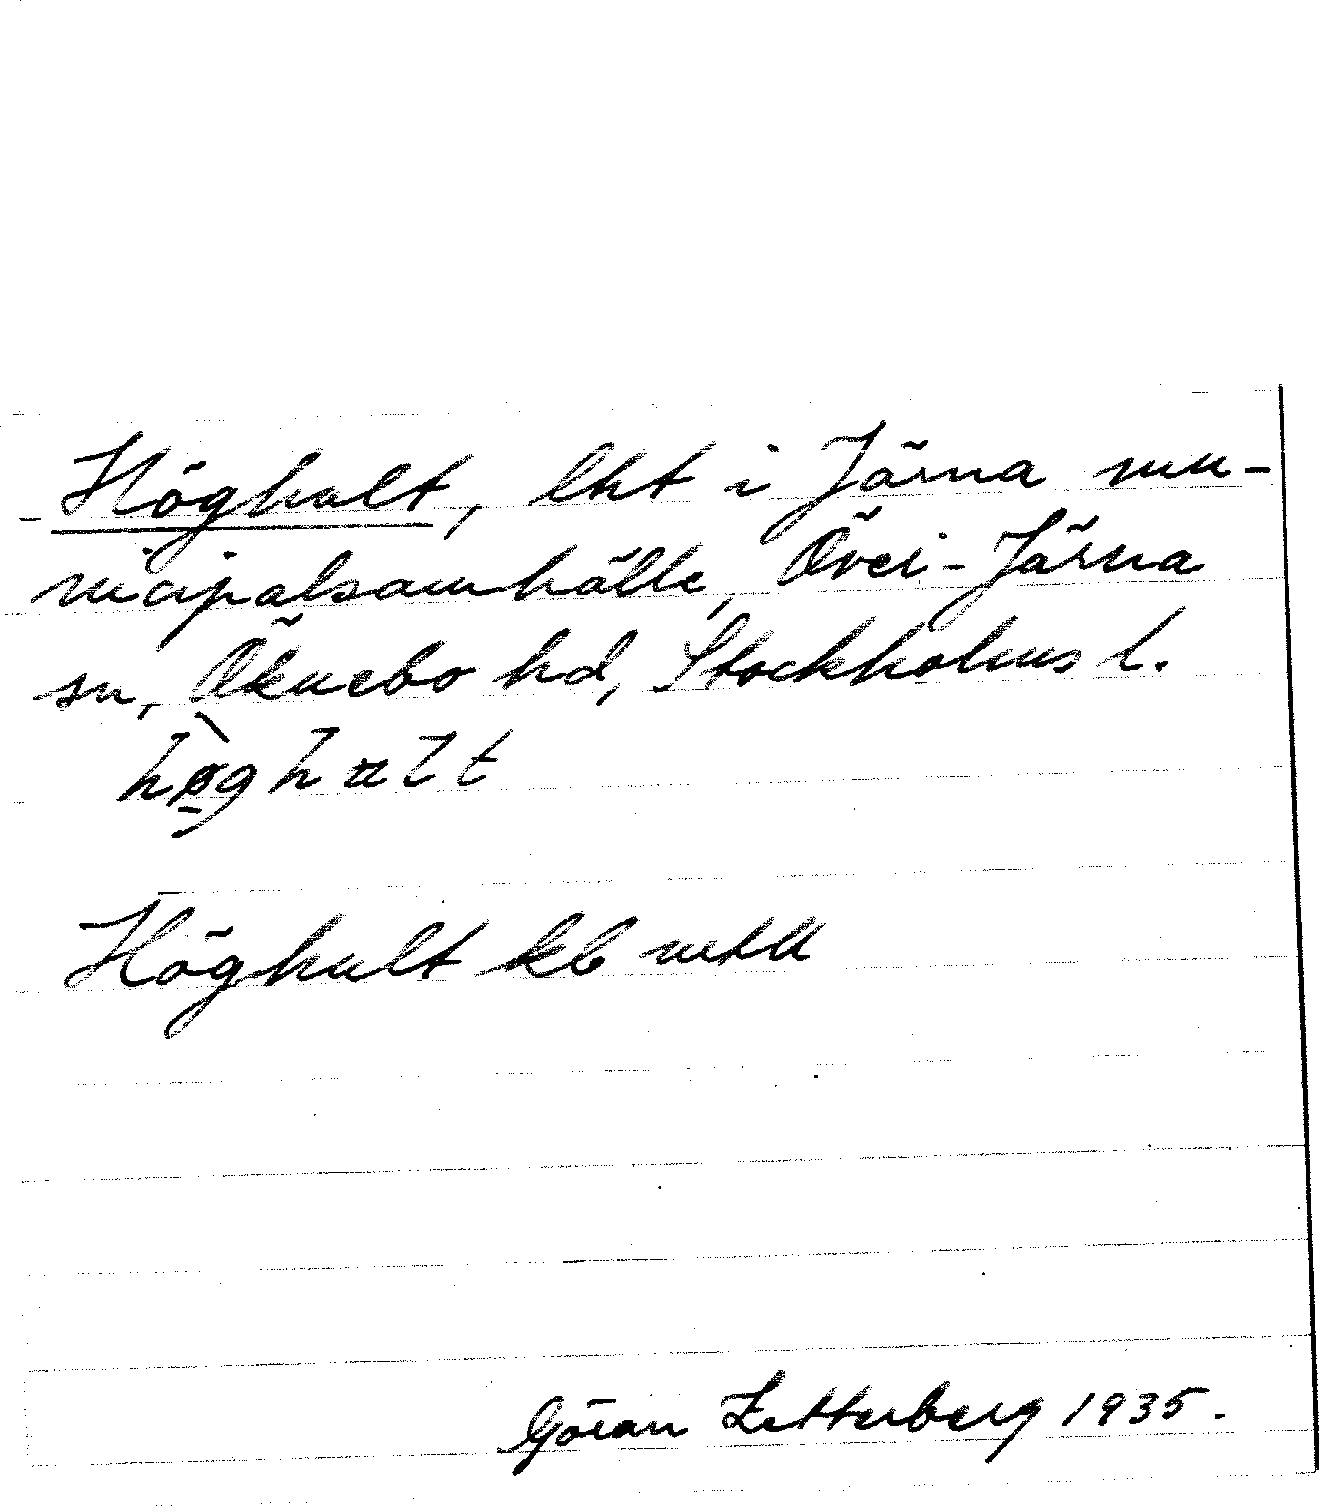 Höghult, lht i Järna mu-
nicipalsamhälle, Över-Järna
sn, Öknebo hd, Stockholms l.
Höghult kb mtll
Göran Zetterberg 1935.